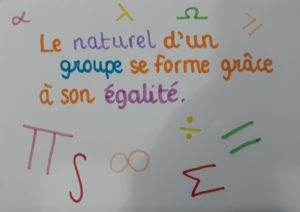 α λ Ω ≥
Le naturel d'un
groupe se forme grâce
à son égalité.
π ∫ ∞ ÷ Σ =